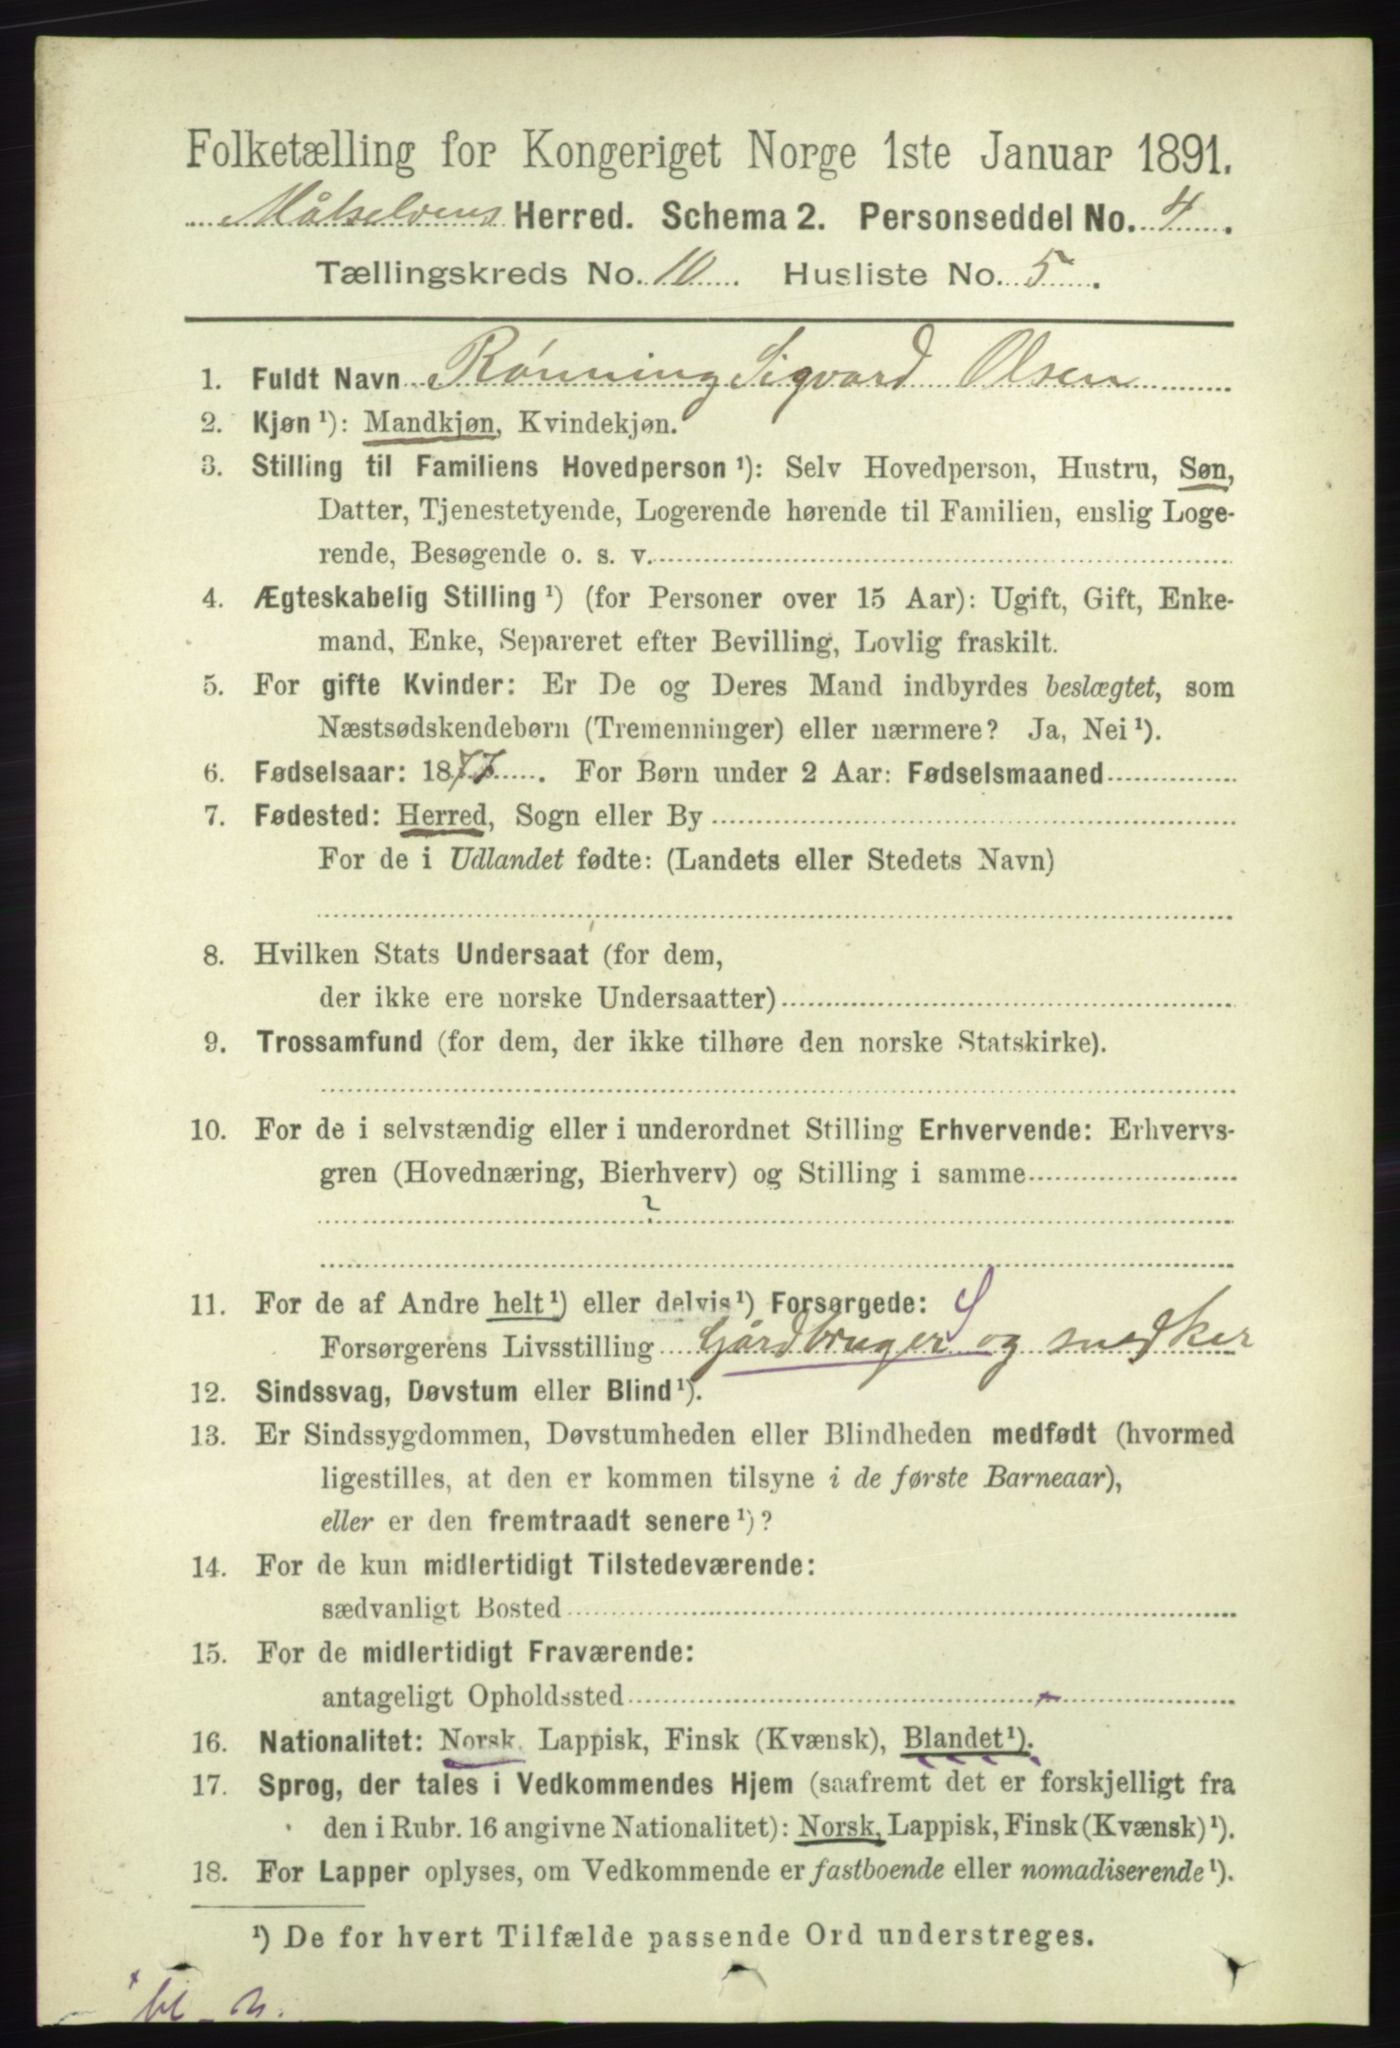 Folketælling for Kongeriget Norge 1ste Januar 1891.
Målselvens Herred. Schema 2. Personseddel No. 4.
Tællingskreds No. 10. Husliste No. 5.
1. Fuldt Navn Rønning Sigvard Olsen
2. Kjøn ¹): Mandkjøn, Kvindekjøn.
3. Stilling til Familiens Hovedperson ¹): Selv Hovedperson, Hustru, Søn,
Datter, Tjenestetyende, Logerende hørende til Familien, enslig Loge-
rende, Besøgende o. s. v.
4. Ægteskabelig Stilling ¹) (for Personer over 15 Aar): Ugift, Gift, Enke-
mand, Enke, Separeret efter Bevilling, Lovlig fraskilt.
5. For gifte Kvinder: Er De og Deres Mand indbyrdes beslægtet, som
Næstsødskendebørn (Tremenninger) eller nærmere? Ja, Nei ¹).
6. Fødselsaar: 1877. For Børn under 2 Aar: Fødselsmaaned
7. Fødested: Herred, Sogn eller By
For de i Udlandet fødte: (Landets eller Stedets Navn)
8. Hvilken Stats Undersaat (for dem,
der ikke ere norske Undersaatter)
9. Trossamfund (for dem, der ikke tilhøre den norske Statskirke).
10. For de i selvstændig eller i underordnet Stilling Erhvervende: Erhvervs-
gren (Hovednæring, Bierhverv) og Stilling i samme
11. For de af Andre helt ¹) eller delvis ¹) Forsørgede:
Forsørgerens Livsstilling Gårdbruger og snedker
12. Sindssvag, Døvstum eller Blind ¹).
13. Er Sindssygdommen, Døvstumheden eller Blindheden medfødt (hvormed
ligestilles, at den er kommen tilsyne i de første Barneaar),
eller er den fremtraadt senere ¹)?
14. For de kun midlertidigt Tilstedeværende:
sædvanligt Bosted
15. For de midlertidigt Fraværende:
antageligt Opholdssted
16. Nationalitet: Norsk, Lappisk, Finsk (Kvænsk), Blandet ¹).
17. Sprog, der tales i Vedkommendes Hjem (saafremt det er forskjelligt fra
den i Rubr. 16 angivne Nationalitet): Norsk, Lappisk, Finsk (Kvænsk) ¹).
18. For Lapper oplyses, om Vedkommende er fastboende eller nomadiserende ¹).
¹) De for hvert Tilfælde passende Ord understreges.
bl - n.